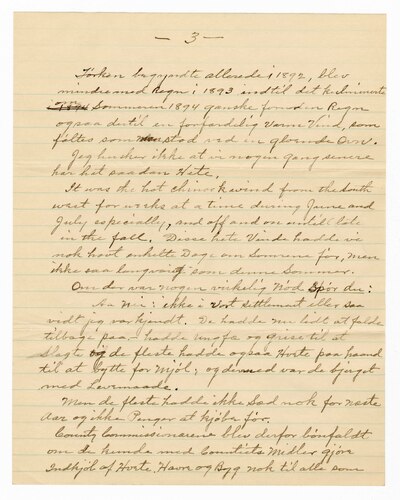 — 3 —
Tørken begyndte allerede i 1892, blev
mindre med Regn i 1893 indtil det kulminerte
Sommeren 1894 ganske foruden Regn
ogsaa dertil en forfærdelig Varm Vind, som
føltes som stod ved en gloende Ovn.
Jeg husker ikke at vi nogen gang senere
har hat saadan Hete.
It was the hot chinook wind from the South
west for weeks at a time during June and
July especially, and off and on until late
in the fall. Desse hete Vinde hadde vi
nok hovt enkelte Dage om Somrene før, men
ikke saa langvarig som denne Sommer.
Om der var nogen virkelig Nød Spør du:
Aa Nei! ikke i Vort settlement eller saa
vidt jeg var kjendt. De hadde nu lidt at falde
tilbage paa, hadde ungfæ og griser til at
slagte og de fleste hadde ogsaa Hvete paa haand
til at bytte for Mjøl, og dermed var de bjerget
med Levemaade.
Men de fleste hadde ikke Sæd nok for næste
Aar og ikke Penger at kjøbe for.
County Commissionærene blev derfor bønfaldt
om de kunde med Countiets Midler gjøre
Indkjøb af Hvete, Havre og Byg nok til alle som